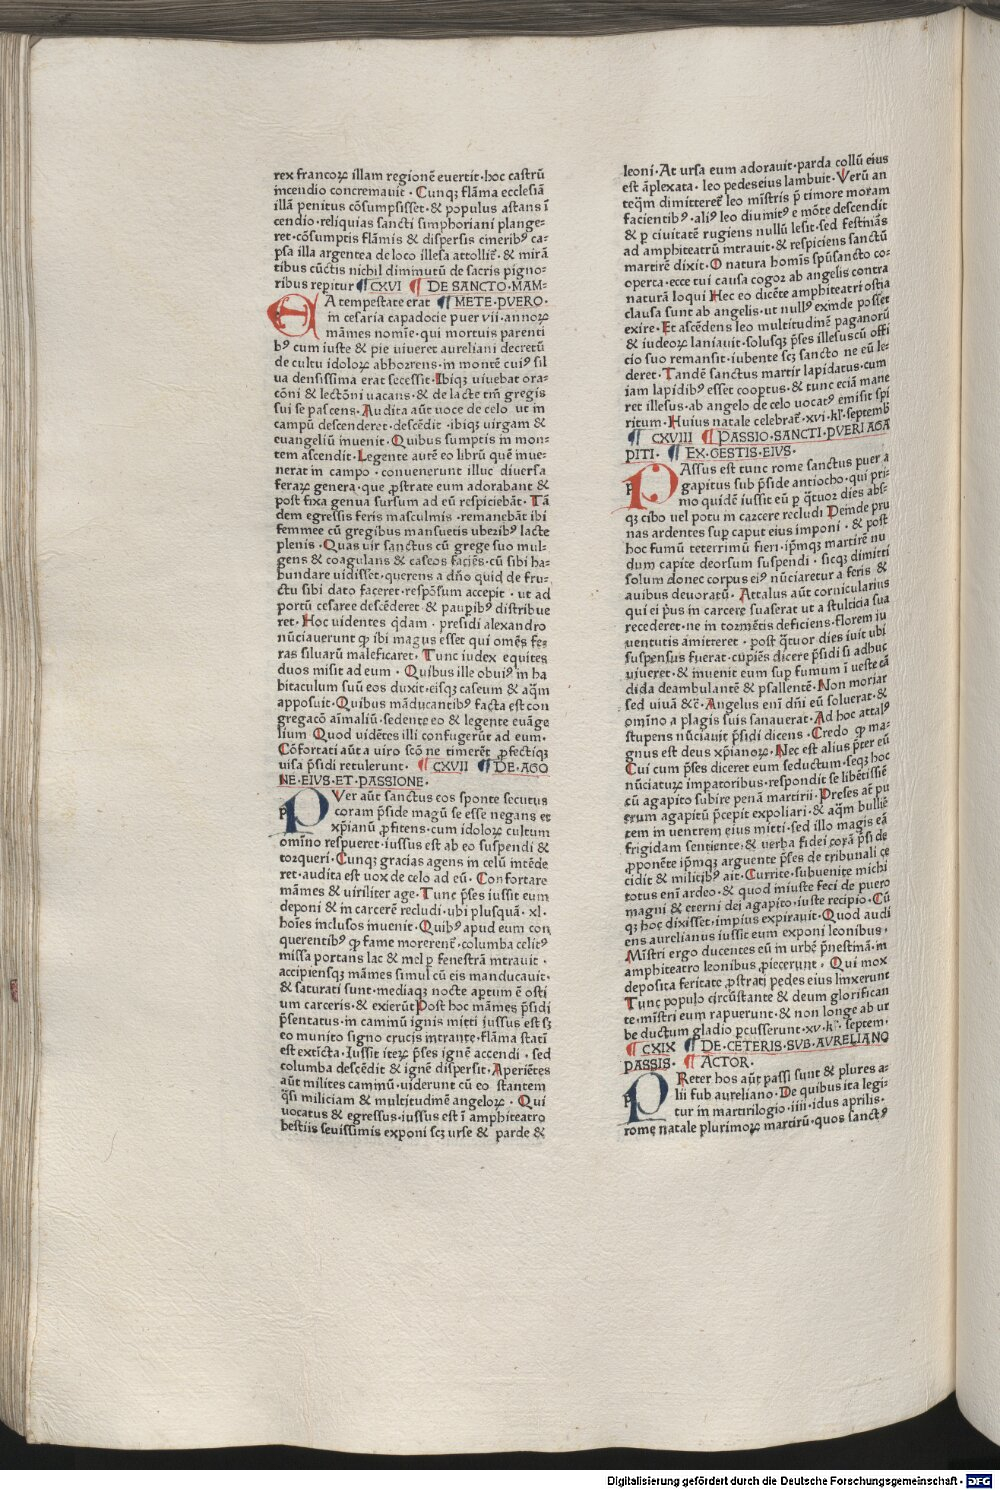 rex francoꝝ illam regionē euertit·hoc castrū
incendio concremauit · Cunqꝫ flāma ecclesiā
illā penitus cōsumpsisset·& populus astans ī
cendio·reliquias sancti simphoriani plange⸗
ret·cōsumptis flāmis & dispersis cineribꝰ ca⸗
psa illa argentea de loco illesa attollit̄·& mirā
tibus cūctis nichil diminutū de sacris pigno⸗
ribus repitur ¶ CXVI ¶ DE SANCTO·MAM⸗
EA tempestate erat ¶ METE·PVERO·
in cesaria capadocie puer vii·annoꝝ
māmes nomīe·qui mortuis parenti
bꝰ cum iuste & pie uiueret aureliani decretū
de cultu idoloꝝ abhorrens·in montē cuiꝰ sil
ua densissima erat secessit·Ibiqꝫ uiuebat ora⸗
cōni & lectōni uacans·& de lacte tm̄ gregis
sui se pascens·Audita aūt uoce de celo ut in
campū descenderet·descēdit·ibiqꝫ uirgam &
euangeliū inuenit·Quibus sumptis in mon⸗
tem ascendit·Legente autē eo librū quē inue⸗
nerat in campo·conuenerunt illuc diuersa
feraꝝ genera·que ꝓstrate eum adorabant &
post fixa genua sursum ad eū respiciebāt·Tā
dem egressis feris masculinis·remanebāt ibi
femmee cū gregibus mansuetis uberibꝰ lacte
plenis·Quas uir sanctus cū grege suo mul⸗
gens & coagulans & caseos faciēs·cū sibi ha⸗
bundare uidisset·querens a dño quid de fru⸗
ctu sibi dato faceret·respōsum accepit·ut ad
portū cesaree descēderet & paupibꝰ distribue
ret·Hoc uidentes qdam·presidi alexandro
nūciauerunt ꝙ ibi magus esset qui omēs fe⸗
ras siluarū maleficaret·Tunc iudex equites
duos misit ad eum·Quibus ille obuiꝰ in ha
bitaculum suū eos duxit·eisqꝫ caseum & aq̄m
apposuit·Quibus māducantibꝰ facta est con
gregacō aīmaliū·sedente eo & legente euāge
lium Quod uidētes illi confugerūt ad eum·
Cōfortati aūt a uiro scō ne timerēt ꝓfectiqꝫ
uisa p̄sidi retulerunt· ¶ CXVII ¶ DE·AGO
NE·EIVS·ET·PASSIONE·
PVer aūt sanctus eos sponte secutus
coram p̄side magū se esse negans et
xp̄ianū ꝓfitens·cum idoloꝝ cultum
omīno respueret·iussus est ab eo suspendi &
torqueri·Cunqꝫ gracias agens in celū intēde
ret·audita est uox de celo ad eū·Confortare
māmes & uiriliter age·Tunc p̄ses iussit eum
deponi & in carcerē recludi·ubi plusquā·xl·
hoīes inclusos inuenit·Quibꝰ apud eum con
querentibꝰ ꝙ fame morerent̄·columba celitꝰ
missa portans lac & mel p fenestrā intrauit·
accipiensqꝫ māmes simul cū eis manducauit·
& saturati sunt·mediaqꝫ nocte aptum ē osti
um carceris·& exierūt Post hoc māmes p̄sidi
p̄sentatus·in caminū ignis mitti iussus est sꝫ
eo munito signo crucis intrante·flāma statī
est extīcta·Iussit iteꝝ p̄ses ignē accendi·sed
columba descēdit & ignē dispersit·Aperiētes
aūt milites caminū·uiderunt cū eo stantem
q̄si miliciam & multitudinē angeloꝝ·Qui
uocatus & egressus·iussus est ī amphiteatro
bestiis seuissimis exponi scꝫ urse & parde &
leoni·At ursa eum adorauit·parda collū eius
est āplexata·leo pedes eius lambuit·Verū an
teq̄m dimitteret̄ leo mīstris p̄ timore moram
facientibꝰ·aliꝰ leo diuinitꝰ e mōte descendit
& p ciuitatē rugiens nullū lesit·sed festinās
ad amphiteatrū intrauit·& respiciens sanctū
martirē dixit·O natura homīs spūsancto co⸗
operta·ecce tui causa cogor ab angelis contra
naturā loqui Hec eo dicēte amphiteatri ostia
clausa sunt ab angelis·ut nullꝰ exinde posset
exire·Et ascēdens leo multitudinē paganorū
& iudeoꝝ laniauit·solusqꝫ p̄ses illesus cū offi
cio suo remansit·iubente scꝫ sancto ne eū le⸗
deret·Tandē sanctus martir lapidatus·cum
iam lapidibꝰ esset cooptus·& tunc eciā mane
ret illesus·ab angelo de celo uocatꝰ emisit spi
ritum·Huius natale celebrat̄·xvi·kl·septemb
¶ CXVIII ¶ PASSIO·SANCTI·PVERI AGA
PITI· ¶ EX·GESTIS·EIVS·
PAssus est tunc rome sanctus puer a
gapitus sub p̄side antiocho·qui pri⸗
mo quidē iussit eū p q̄tuor dies abs⸗
qꝫ cibo uel potu in carcere recludi Deinde pru
nas ardentes sup caput eius imponi·& post
hoc fumū teterrimū fieri·ip̄mqꝫ martirē nu
dum capite deorsum suspendi·sicqꝫ dimitti
solum donec corpus eiꝰ nūciaretur a feris &
auibus deuoratū·Attalus aūt cornicularius
qui ei p̄us in carcere suaserat ut a stulticia sua
recederet·ne in tormētis deficiens·florem iu
uentutis amitteret·post q̄tuor dies iuit ubi
suspensus fuerat·cupiēs dicere p̄sidi si adhuc
uiueret·& inuenit eum sup fumum ī ueste cā
dida deambulantē & psallentē·Non moriar
sed uiuā &c̄·Angelus enī dn̄i eū soluerat·&
omīno a plagis suis sanauerat·Ad hoc attalꝰ
stupens nūciauit p̄sidi dicens·Credo ꝙ ma⸗
gnus est deus xp̄ianoꝝ·Nec est alius p̄ter eū
Cui cum p̄ses diceret eum seductum·seqꝫ hoc
nūciaturꝝ impatoribus·respondit se libētissīe
cū agapito subire penā martirii·Preses at̄ pu
erum agapitū p̄cepit expoliari·& aq̄m bulliē
tem in uentrem eius mitti·sed illo magis eā
frigidam sentiente·& uerba fidei corā p̄side
ꝓponēte ip̄mqꝫ arguente p̄ses de tribunali ce
cidit & militibꝰ ait·Currite·subuenite michi
totus enī ardeo·& quod iniuste feci de puero
magni & eterni dei agapito·iuste recipio·Cū
qꝫ hoc dixisset·impius expirauit·Quod audi
ens aurelianus iussit eum exponi leonibus·
Mīstri ergo ducentes eū in urbē p̄nestinā·in
amphiteatro leonibus ꝓiecerunt·Qui mox
deposita feritate ꝓstrati pedes eius linxerunt
Tunc populo circūstante & deum glorifican
te·mīstri eum rapuerunt·& non longe ab ur
be ductum gladio pcusserunt·xv·kl·septem·
¶ CXIX ¶ DE·CETERIS·SVB·AVRELIANO
PASSIS· ¶ ACTOR·
PReter hos aūt passi sunt & plures a⸗
lii sub aureliano·De quibus ita legi⸗
tur in martirilogio·iiii·idus aprilis·
rome natale plurimoꝝ martirū·quos sanctꝰ
Digitalisierung gefördert durch die Deutsche Forschungsgemeinschaft - DFG